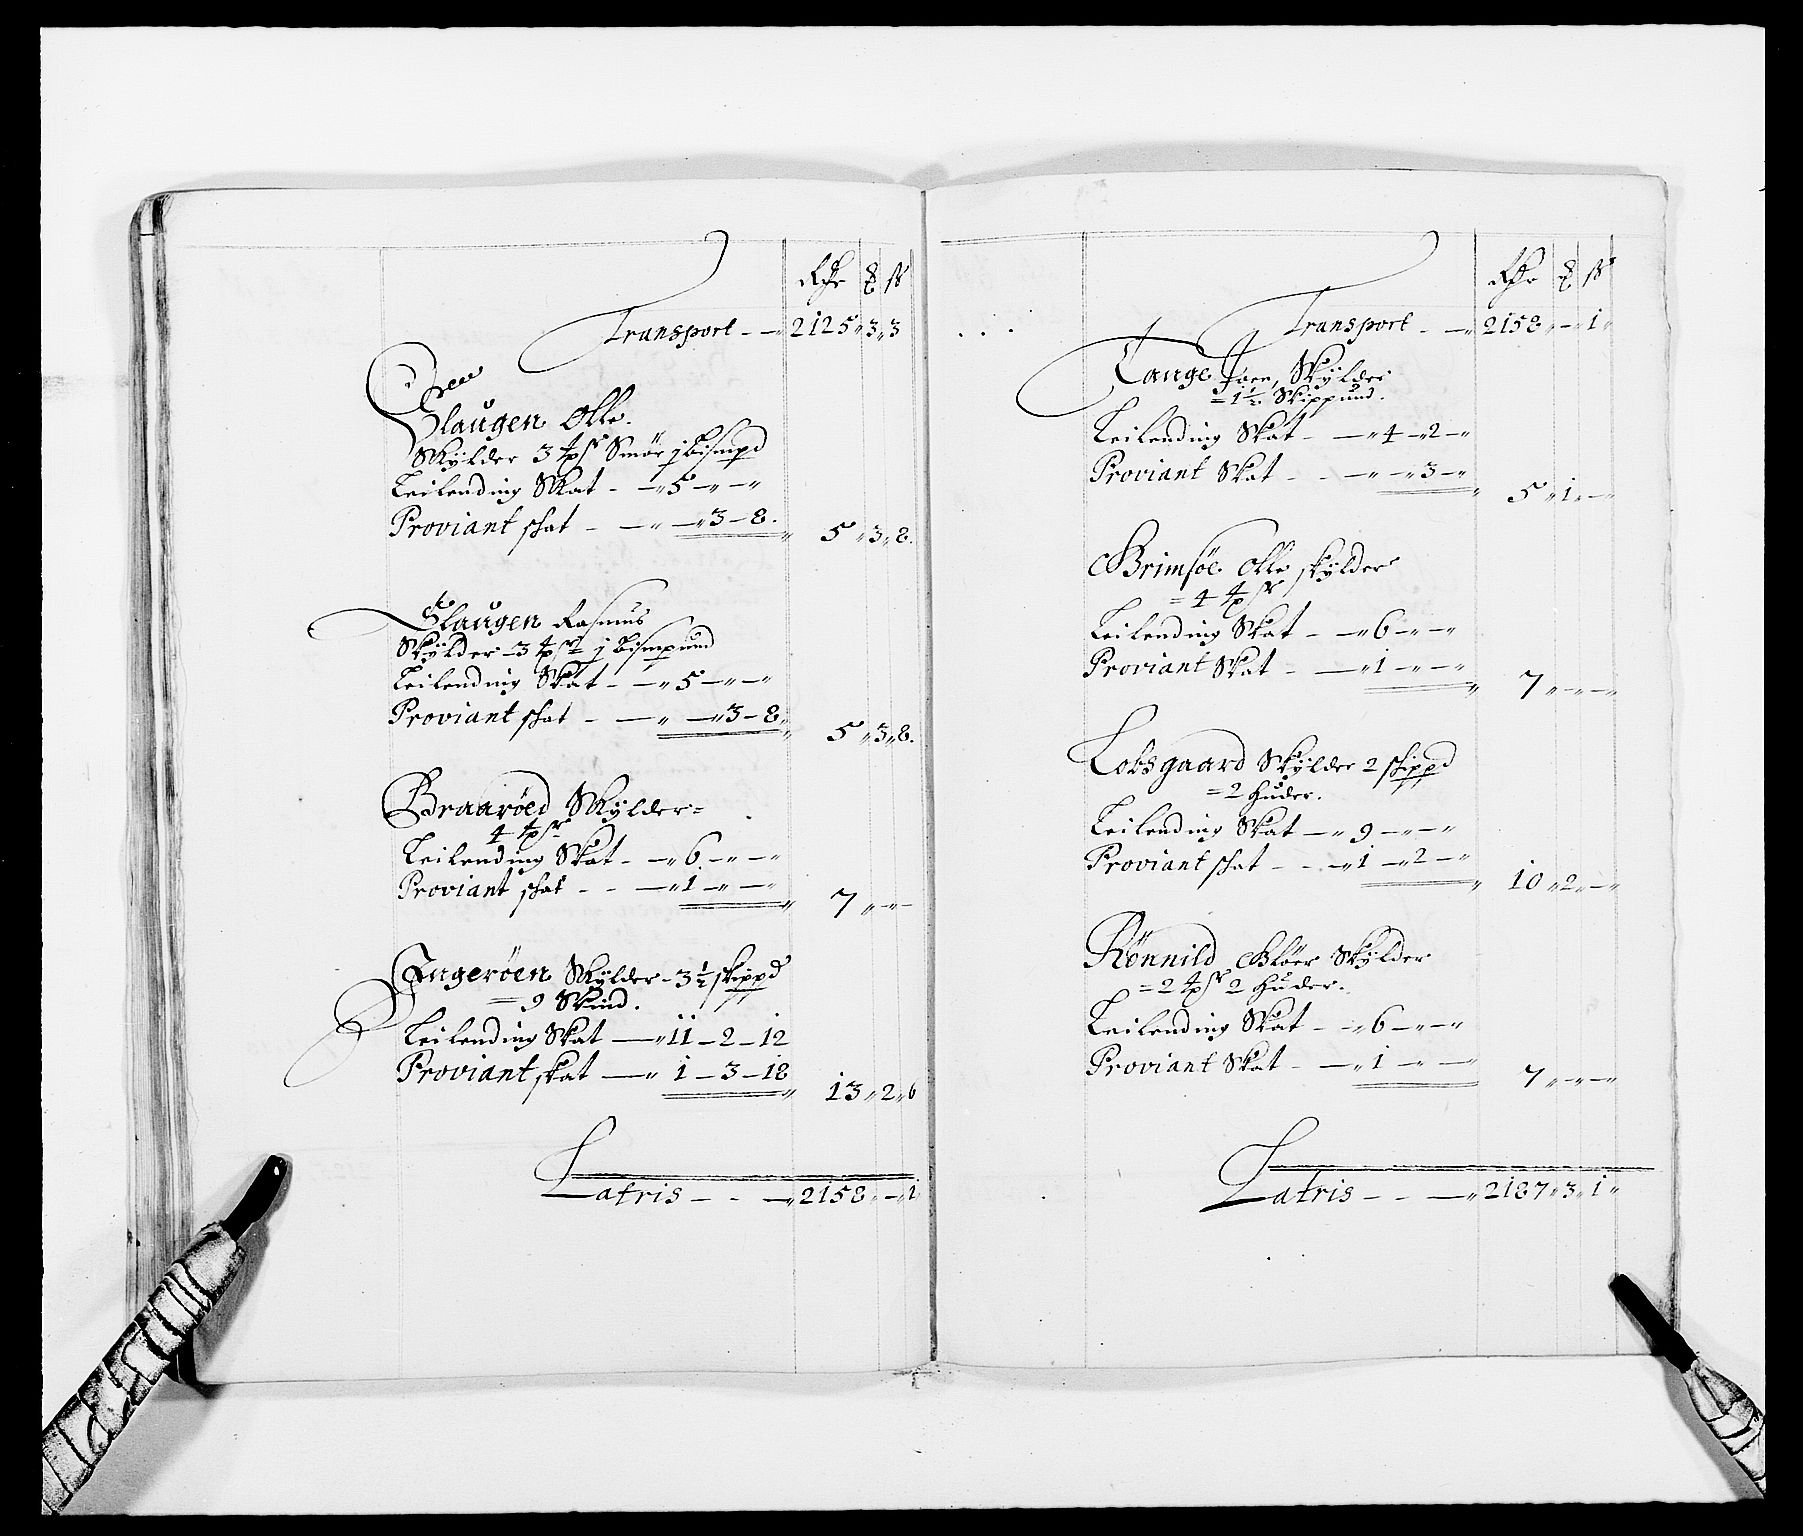 Rdr ß
Transport - - 2125 " 3 " 3
Slaugen Olle.
Skylder 3 Smör j bismpd
Leilending Skat - - " 5 - " - "
Proviant skat - - " - " 3 - 8.
5 " 3 " 8.
Slaugen Rasmus
Skylder 3 j bismpund
Leilending Skat - - " 5 - " - "
Proviant skat - - " - " 3 - 8 "
5 " 3 " 8.
Braaröed Skylder =
4
Leilending Skat - - " 6 - " - "
Proviant skat - - - " 1 - " - "
7 " - " -
Ingeröen Skylder - 3 1/2 skippd
= 9 Skind.
Leilending Skat - " 11 - 2 - 12
Proviant skat - " 1 - 3 - 18
13 " 2 " 6
Latris - - - " 2158 " - " 1
Rdr ß
Transport - - " 2158 " - " 1 "
Tange Skylder
= 1 1/2 Skippund.
Leilending Skat - - " 4 - " 2 - "
Proviant Skat - - - " - " 3 - "
5 " 1 " -
Brimsöe Olle skylder
= 4
Leilending Skat - - " 6 - " - "
Proviant Skat - - " 1 - " - "
7 " - " -
Lobsgaard Skylder 2 skippd
= 2 huder.
Leilending Skat - " 9 - " - "
Proviant skat - - - " 1 - " 2 - "
10 " 2 " -
Rönnild Skylder
= 2 2 huder.
Leilending Skat - - " 6 - " - "
Proviant Skat - - " 1 - " - "
7 " - " -
Latris - - - " 2187 " 3 " 1 "